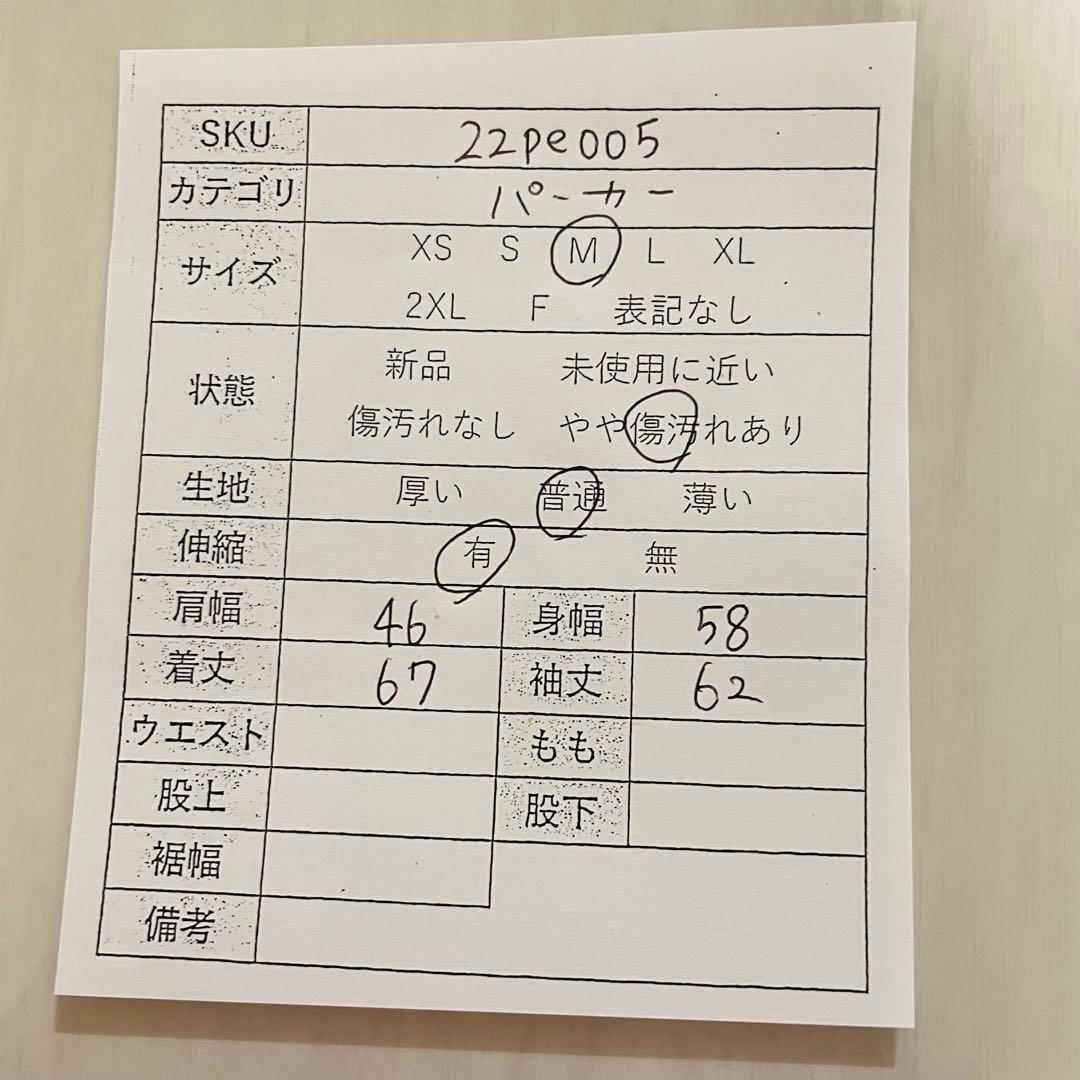 SKU 22pe005
カテゴリ パーカー
サイズ XS S M L XL
2XL F 表記なし
状態 新品 未使用に近い
傷汚れなし やや傷汚れあり
生地 厚い 普通 薄い
伸縮 有 無
肩幅 46 身幅 58
着丈 67 袖丈 62
ウエスト もも
股上 股下
裾幅
備考